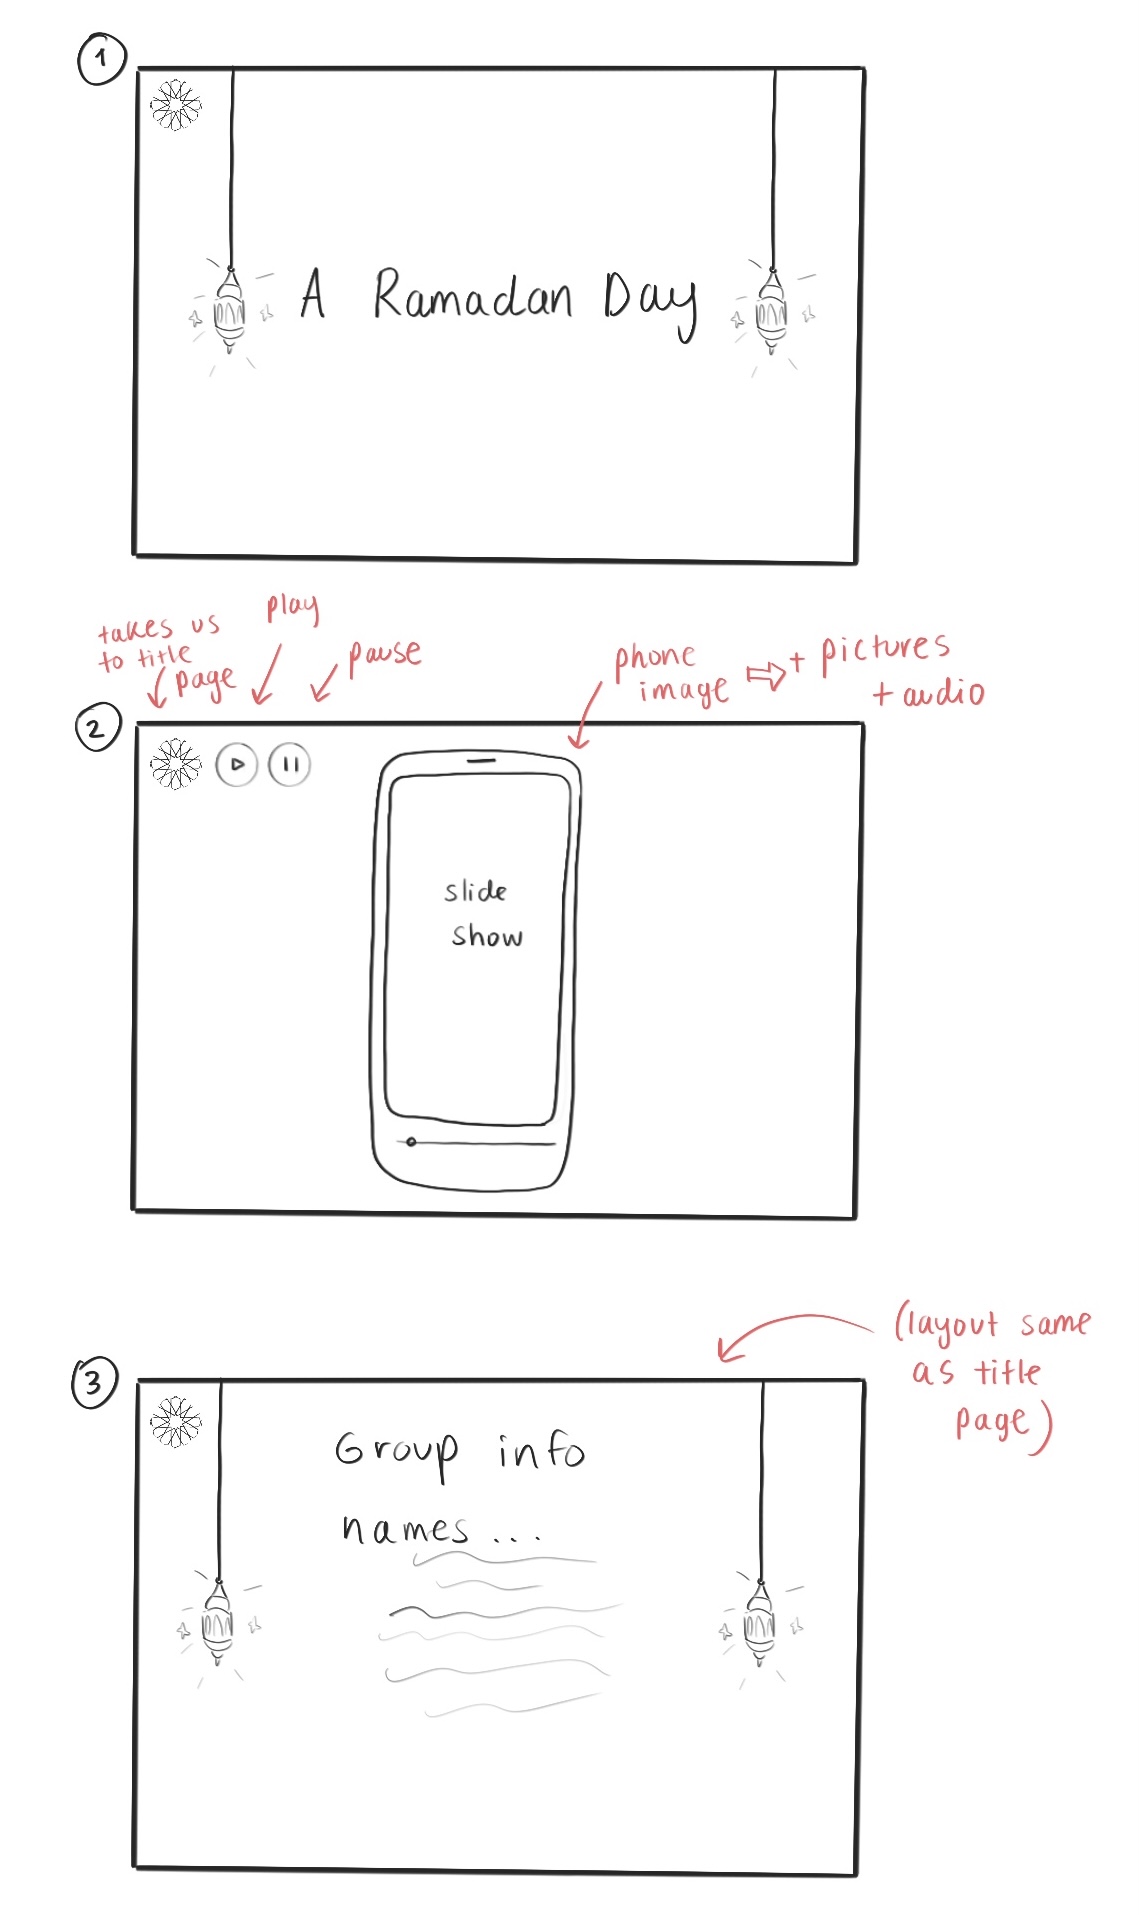 1
A Ramadan Day
takes us
to title
page
play
pause
phone
image
+ pictures
+ audio
2
slide
show
(layout same
as title
page)
3
Group info
names...